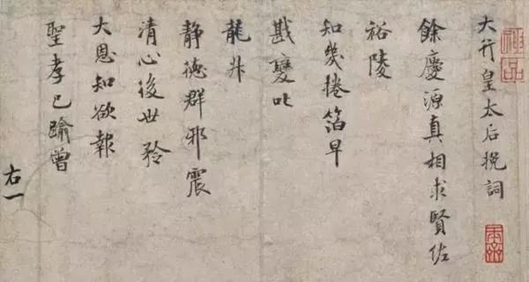 大行皇太后挽詞
餘慶源真相求賢佐
裕陵
知幾捲箔早
戡變叱
龍升
静德群邪震
清心後世矜
大恩知欲報
聖孝已踰曾
右一